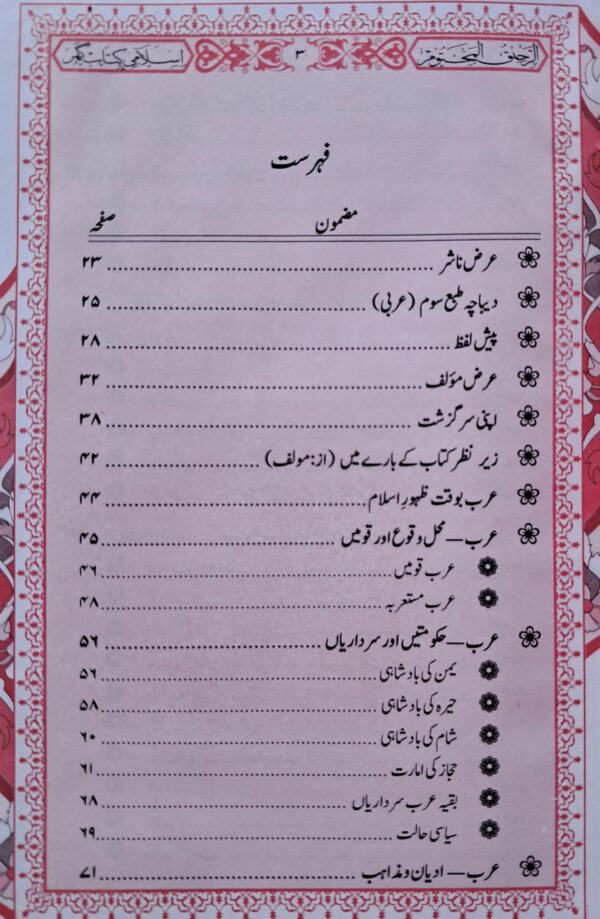 الرحیق المختوم ۳ اسلامی کتاب گھر
فہرست
مضمون صفحہ
عرض ناشر ........ ۲۳
دیباچہ طبع سوم (عربی) ........ ۲۵
پیش لفظ ........ ۲۸
عرض مؤلف ........ ۳۲
اپنی سرگزشت ........ ۳۸
زیر نظر کتاب کے بارے میں (از: مولف) ........ ۴۲
عرب بوقت ظہورِ اسلام ........ ۴۴
عرب — محل وقوع اور قومیں ........ ۴۵
عرب قومیں ........ ۴۶
عرب مستعربہ ........ ۴۸
عرب — حکومتیں اور سرداریاں ........ ۵۶
یمن کی بادشاہی ........ ۵۶
حیرہ کی بادشاہی ........ ۵۸
شام کی بادشاہی ........ ۶۰
حجاز کی امارت ........ ۶۱
بقیہ عرب سرداریاں ........ ۶۸
سیاسی حالت ........ ۶۹
عرب — ادیان و مذاہب ........ ۷۱